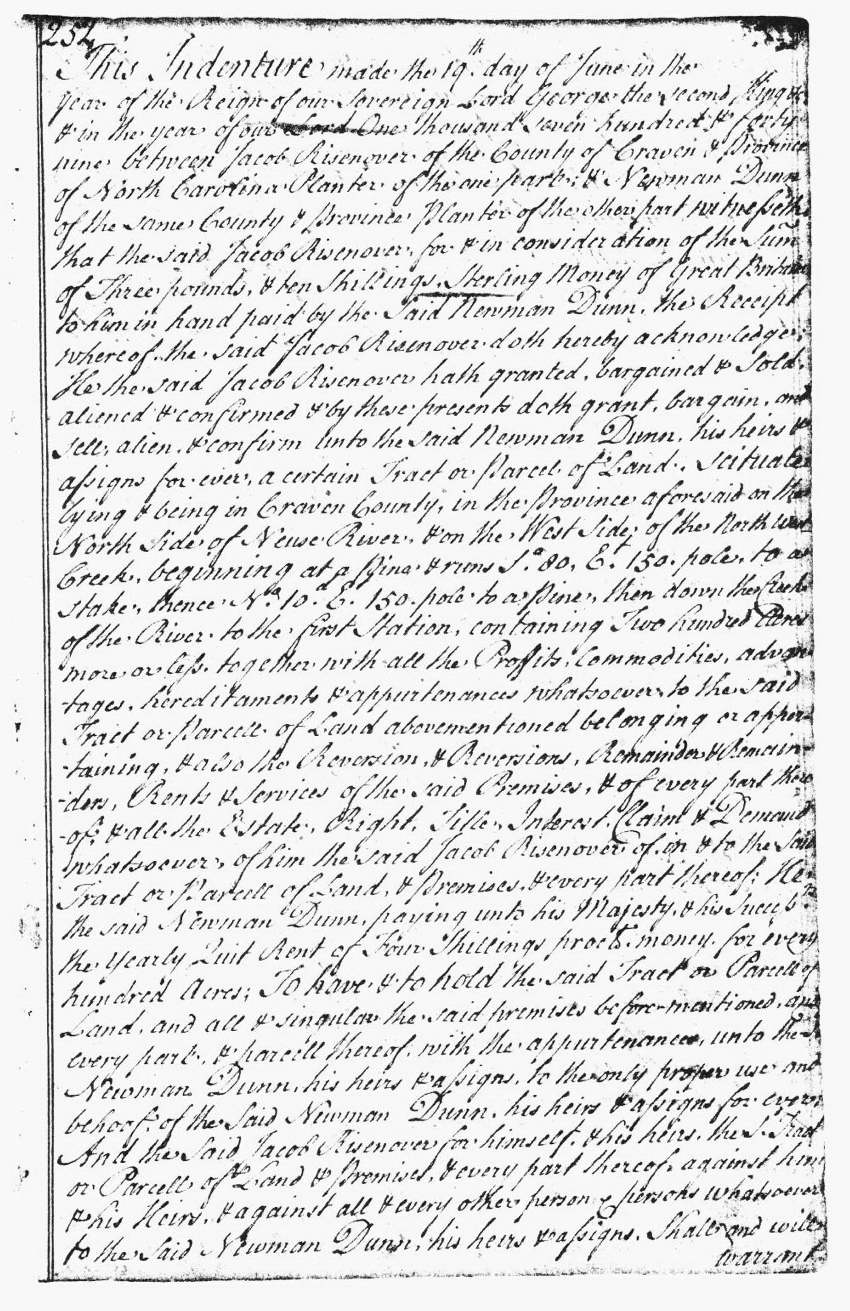 252
This Indenture made the 19th day of June in the
year of the Reign of our Sovereign Lord George the Second, King &c
& in the year of our Lord One thousand seven hundred & forty
nine between Jacob Risenover of the County of Craven & Province
of North Carolina Planter of the one part; & Newman Dunn
of the same County & Province Planter of the other part witnesseth
that the said Jacob Risenover, for & in consideration of the Sum
of Three pounds, & ten Shillings, Sterling Money of Great Britain
to him in hand paid by the Said Newman Dunn, the Receipt
whereof, the said Jacob Risenover doth hereby acknowledge;
He the said Jacob Risenover hath granted, bargained & Sold,
aliened & confirmed & by these presents doth grant, bargain, and
sell, alien, & confirm unto the said Newman Dunn, his heirs &
assigns for ever, a certain Tract or Parcel of Land, scituate
lying & being in Craven County, in the Province aforesaid on the
North Side of Neuse River, & on the West Side; of the North West
Creek, beginning at a Pine & runs So. 80, Et. 150. pole, to a
stake, thence No. 10 d. E. 150. pole to a Pine, then down the Creek
of the River to the first Station, containing Two hundred Acres
more or less, together with all the Proffits, Commodities, advan
-tages, hereditaments & appurtenances whatsoever, to the said
Tract or Parcell of Land abovementioned belonging or apper-
-taining, & also the Reversion, & Reversions, Remainder & Remain-
-ders, Rents & Services of the said Premises, & of every part there
-of, & all the Estate, Right, Title, Interest, Claim & Demand
whatsoever, of him the said Jacob Risenover of, in & to the Said
Tract or Parcell of Land, & Premises, & every part thereof; He
the said Newman Dunn, paying unto his Majesty, & his Success.rs
the yearly Quit Rent of Four Shillings procl. money, for every
hundred Acres; To have & to hold the said Tract or Parcell of
Land, and all & singular the said premises before-mentioned, and
every part, & parcell thereof, with the appurtenances, unto the S.
Newman Dunn, his heirs & assigns, to the only proper use and
behoof, of the Said Newman Dunn, his heirs & assigns for ever
And the Said Jacob Risenover for himself, & his heirs, the S. Tract
or Parcell of Land & Premises, & every part thereof, against him
& his Heirs, & against all & every other person & persons whatsoever
to the Said Newman Dunn, his heirs & assigns, Shall and will
warrant